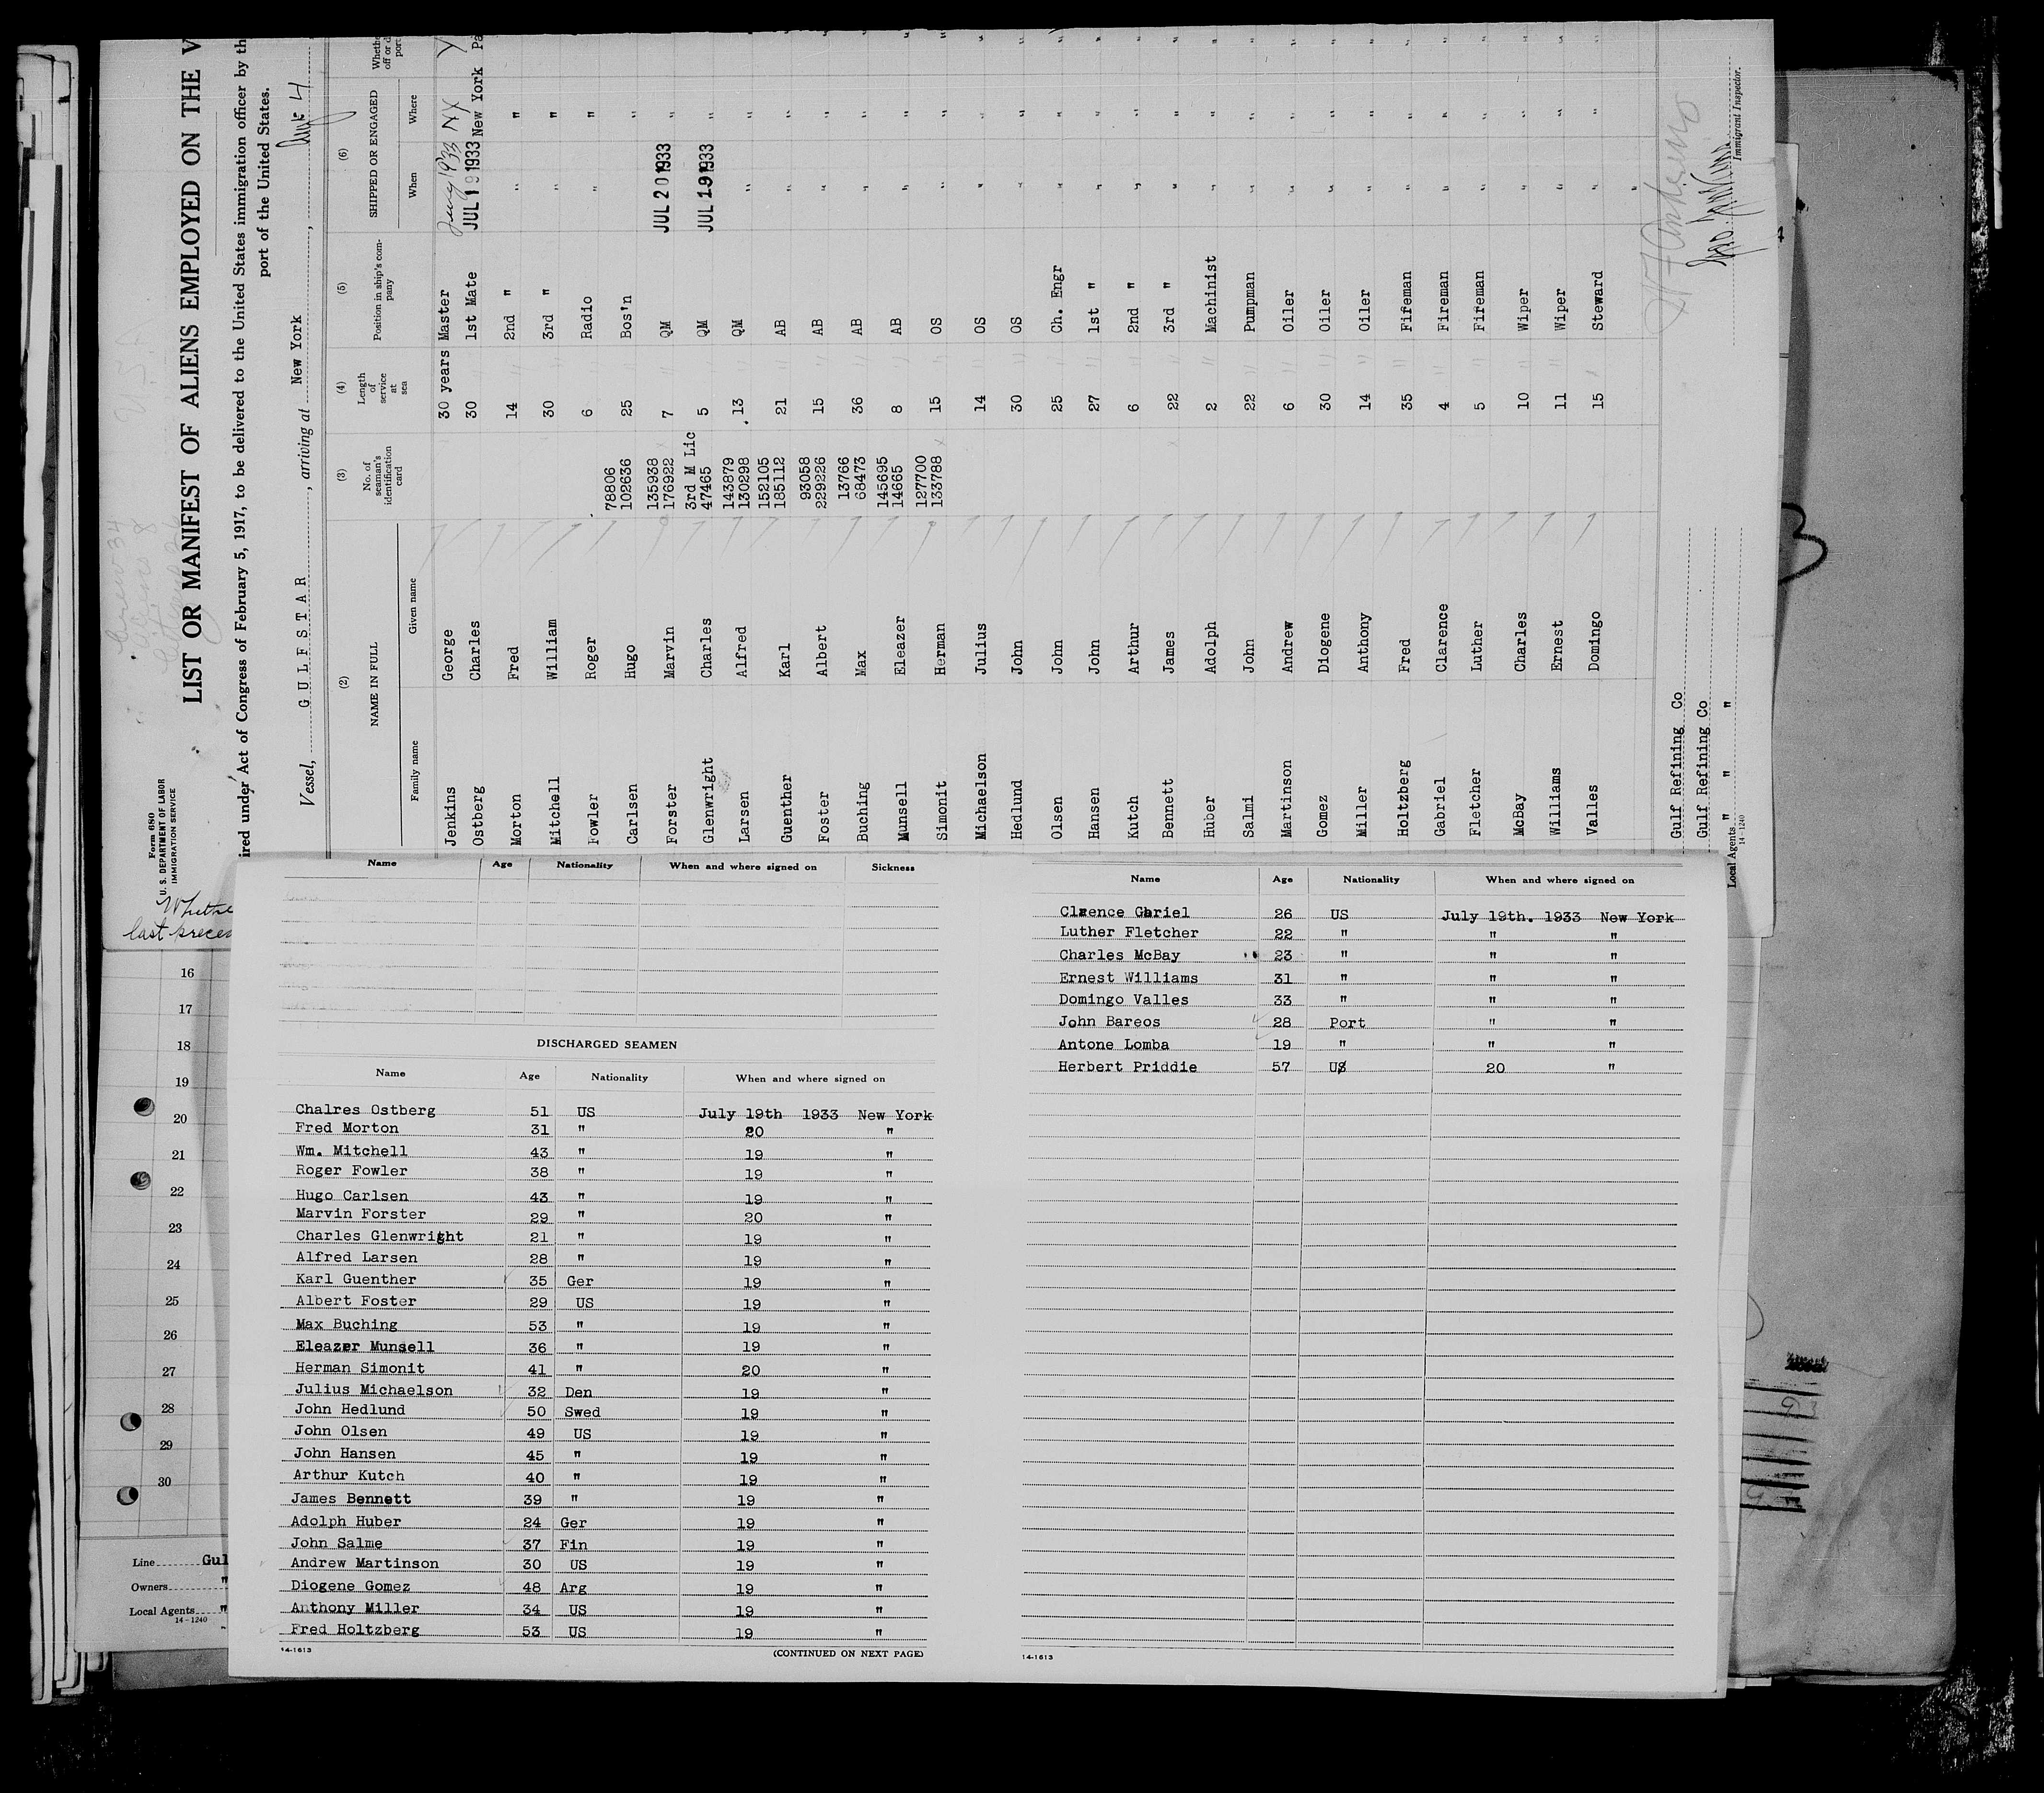 Form 680
U. S. DEPARTMENT OF LABOR
IMMIGRATION SERVICE
LIST OR MANIFEST OF ALIENS EMPLOYED ON THE V
ired under Act of Congress of February 5, 1917, to be delivered to the United States immigration officer by th
port of the United States.
Vessel, GULFSTAR, arriving at New York,
(2) (3) (4) (5) (6)
NAME IN FULL No. of seaman's identification card Length of service at sea Position in ship's company SHIPPED OR ENGAGED
Family name Given name When Where
Jenkins George 30 years Master
Ostberg Charles 30 1st Mate JUL 19 1933 New York
Morton Fred 14 2nd " " "
Mitchell William 30 3rd " " "
Fowler Roger 6 Radio " "
Carlsen Hugo 78806 102636 25 Bos'n "
Forster Marvin 135938 176922 7 QM JUL 20 1933 "
Glenwright Charles 3rd M Lic 47465 5 QM JUL 19 1933 "
Larsen Alfred 143879 130298 13 QM " "
Guenther Karl 152105 185112 21 AB " "
Foster Albert 93058 229226 15 AB " "
Buching Max 13766 68473 36 AB " "
Munsell Eleazer 145695 14665 8 AB " "
Simonit Herman 127700 133788 15 OS " "
Michaelson Julius 14 OS " "
Hedlund John 30 OS " "
Olsen John 25 Ch. Engr " "
Hansen John 27 1st " " "
Kutch Arthur 6 2nd " " "
Bennett James 22 3rd " " "
Huber Adolph 2 Machinist " "
Salmi John 22 Pumpman " "
Martinson Andrew 6 Oiler " "
Gomez Diogene 30 Oiler " "
Miller Anthony 14 Oiler " "
Holtzberg Fred 35 Fifeman " "
Gabriel Clarence 4 Fireman " "
Fletcher Luther 5 Fireman " "
McBay Charles 10 Wiper " "
Williams Ernest 11 Wiper " "
Valles Domingo 15 Steward " "
Gulf Refining Co
Gulf Refining Co
Local Agents " " "
14-1240
Immigrant Inspector.
last preced
16
17
18
19
20
21
22
23
24
25
26
27
28
29
30
Line Gul
Owners "
Local Agents "
14-1240
Name Age Nationality When and where signed on Sickness
DISCHARGED SEAMEN
Name Age Nationality When and where signed on
Chalres Ostberg 51 US July 19th 1933 New York
Fred Morton 31 " 20 "
Wm. Mitchell 43 " 19 "
Roger Fowler 38 " 19 "
Hugo Carlsen 43 " 19 "
Marvin Forster 29 " 20 "
Charles Glenwright 21 " 19 "
Alfred Larsen 28 " 19 "
Karl Guenther 35 Ger 19 "
Albert Foster 29 US 19 "
Max Buching 53 " 19 "
Eleazer Munsell 36 " 19 "
Herman Simonit 41 " 20 "
Julius Michaelson 32 Den 19 "
John Hedlund 50 Swed 19 "
John Olsen 49 US 19 "
John Hansen 45 " 19 "
Arthur Kutch 40 " 19 "
James Bennett 39 " 19 "
Adolph Huber 24 Ger 19 "
John Salme 37 Fin 19 "
Andrew Martinson 30 US 19 "
Diogene Gomez 48 Arg 19 "
Anthony Miller 34 US 19 "
Fred Holtzberg 53 US 19 "
14-1613 (CONTINUED ON NEXT PAGE)
Name Age Nationality When and where signed on
Clarence Gabriel 26 US July 19th. 1933 New York
Luther Fletcher 22 " " "
Charles McBay 23 " " "
Ernest Williams 31 " " "
Domingo Valles 33 " " "
John Bareos 28 Port " "
Antone Lomba 19 " " "
Herbert Priddie 57 US 20 "
14-1613